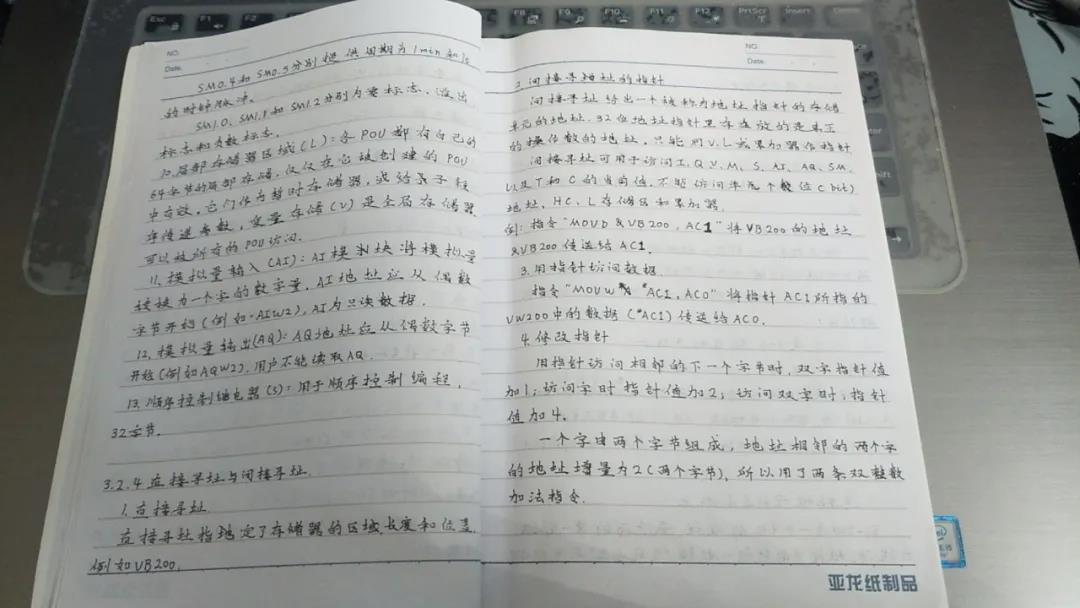 NO.
Date.
SM0.4和SM0.5分别提供周期为1min和1s
的时钟脉冲。
SM1.0、SM1.1和SM1.2分别为零标志、溢出
标志和负数标志。
10.局部存储器区域(L):各POU都有自己的
64字节的局部存储,仅仅在它被创建的POU
中有效。它们作为暂时存储器,或给子程
序传递参数,变量存储(V)是全局存储器
可以被所有的POU访问。
11.模拟量输入(AI):AI模块将模拟量
转换为一个字的数字量,AI地址应从偶数
字节开始(例如AIW2),AI为只读数据.
12.模拟量输出(AQ):AQ地址应从偶数字节
开始(例如AQW2),用户不能读取AQ.
13.顺序控制继电器(S):用于顺序控制编程,
32字节.
3.2.4直接寻址与间接寻址.
1.直接寻址
直接寻址指定了存储器的区域、长度和位置.
例如VB200.
NO.
Date.
2.间接寻址的指针
间接寻址给出一个被称为地址指针的存储
单元的地址.32位地址指针里存放的是真正
的操作数的地址,只能用V、L或累加器作指针
间接寻址可用于访问I、Q、V、M、S、AI、AQ、SM
以及T和C的当前值.不能访问单个位(bit)
地址、HC、L存储区和累加器.
例:指令“MOVD &VB200,AC1”将VB200的地址
&VB200传送给AC1.
3.用指针访问数据
指令“MOVW *AC1,AC0”将指针AC1所指的
VW200中的数据(*AC1)传送给AC0.
4.修改指针
用指针访问相邻的下一个字节时,双字指针值
加1;访问字时指针值加2;访问双字时,指针
值加4.
一个字由两个字节组成,地址相邻的两个字
的地址增量为2(两个字节),所以用了两条双整数
加法指令.
亚龙纸制品
Esc
F1
F2
F8
F9
F10
F11
F12
PrtScr
Insert
intel